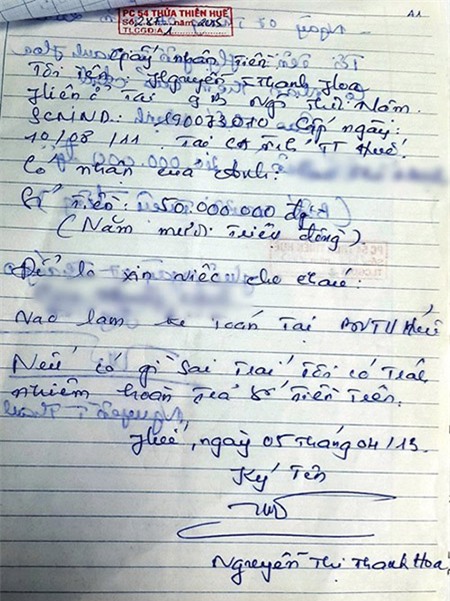 A1
PC 54 THỪA THIÊN HUẾ
Giấy nhận Tiền
Tôi tên: Nguyễn T Thanh Hoa
Hiện ở Tại Ngô Thì Nhậm.
SCMND: Cấp ngày:
10/08/11. Tại CA Tỉnh TT Huế.
Có nhận của Anh:
Số Tiền: 50.000.000 đ
(Năm mươi Triệu đồng).
Để lo xin việc cho
Vào làm kế Toán Tại BVTU Huế
Nếu có gì Sai Trái Tôi có Trách
nhiệm hoàn trả Số Tiền Trên.
Huế, ngày 05 Tháng 04/13.
Ký Tên
Nguyễn Thị Thanh Hoa